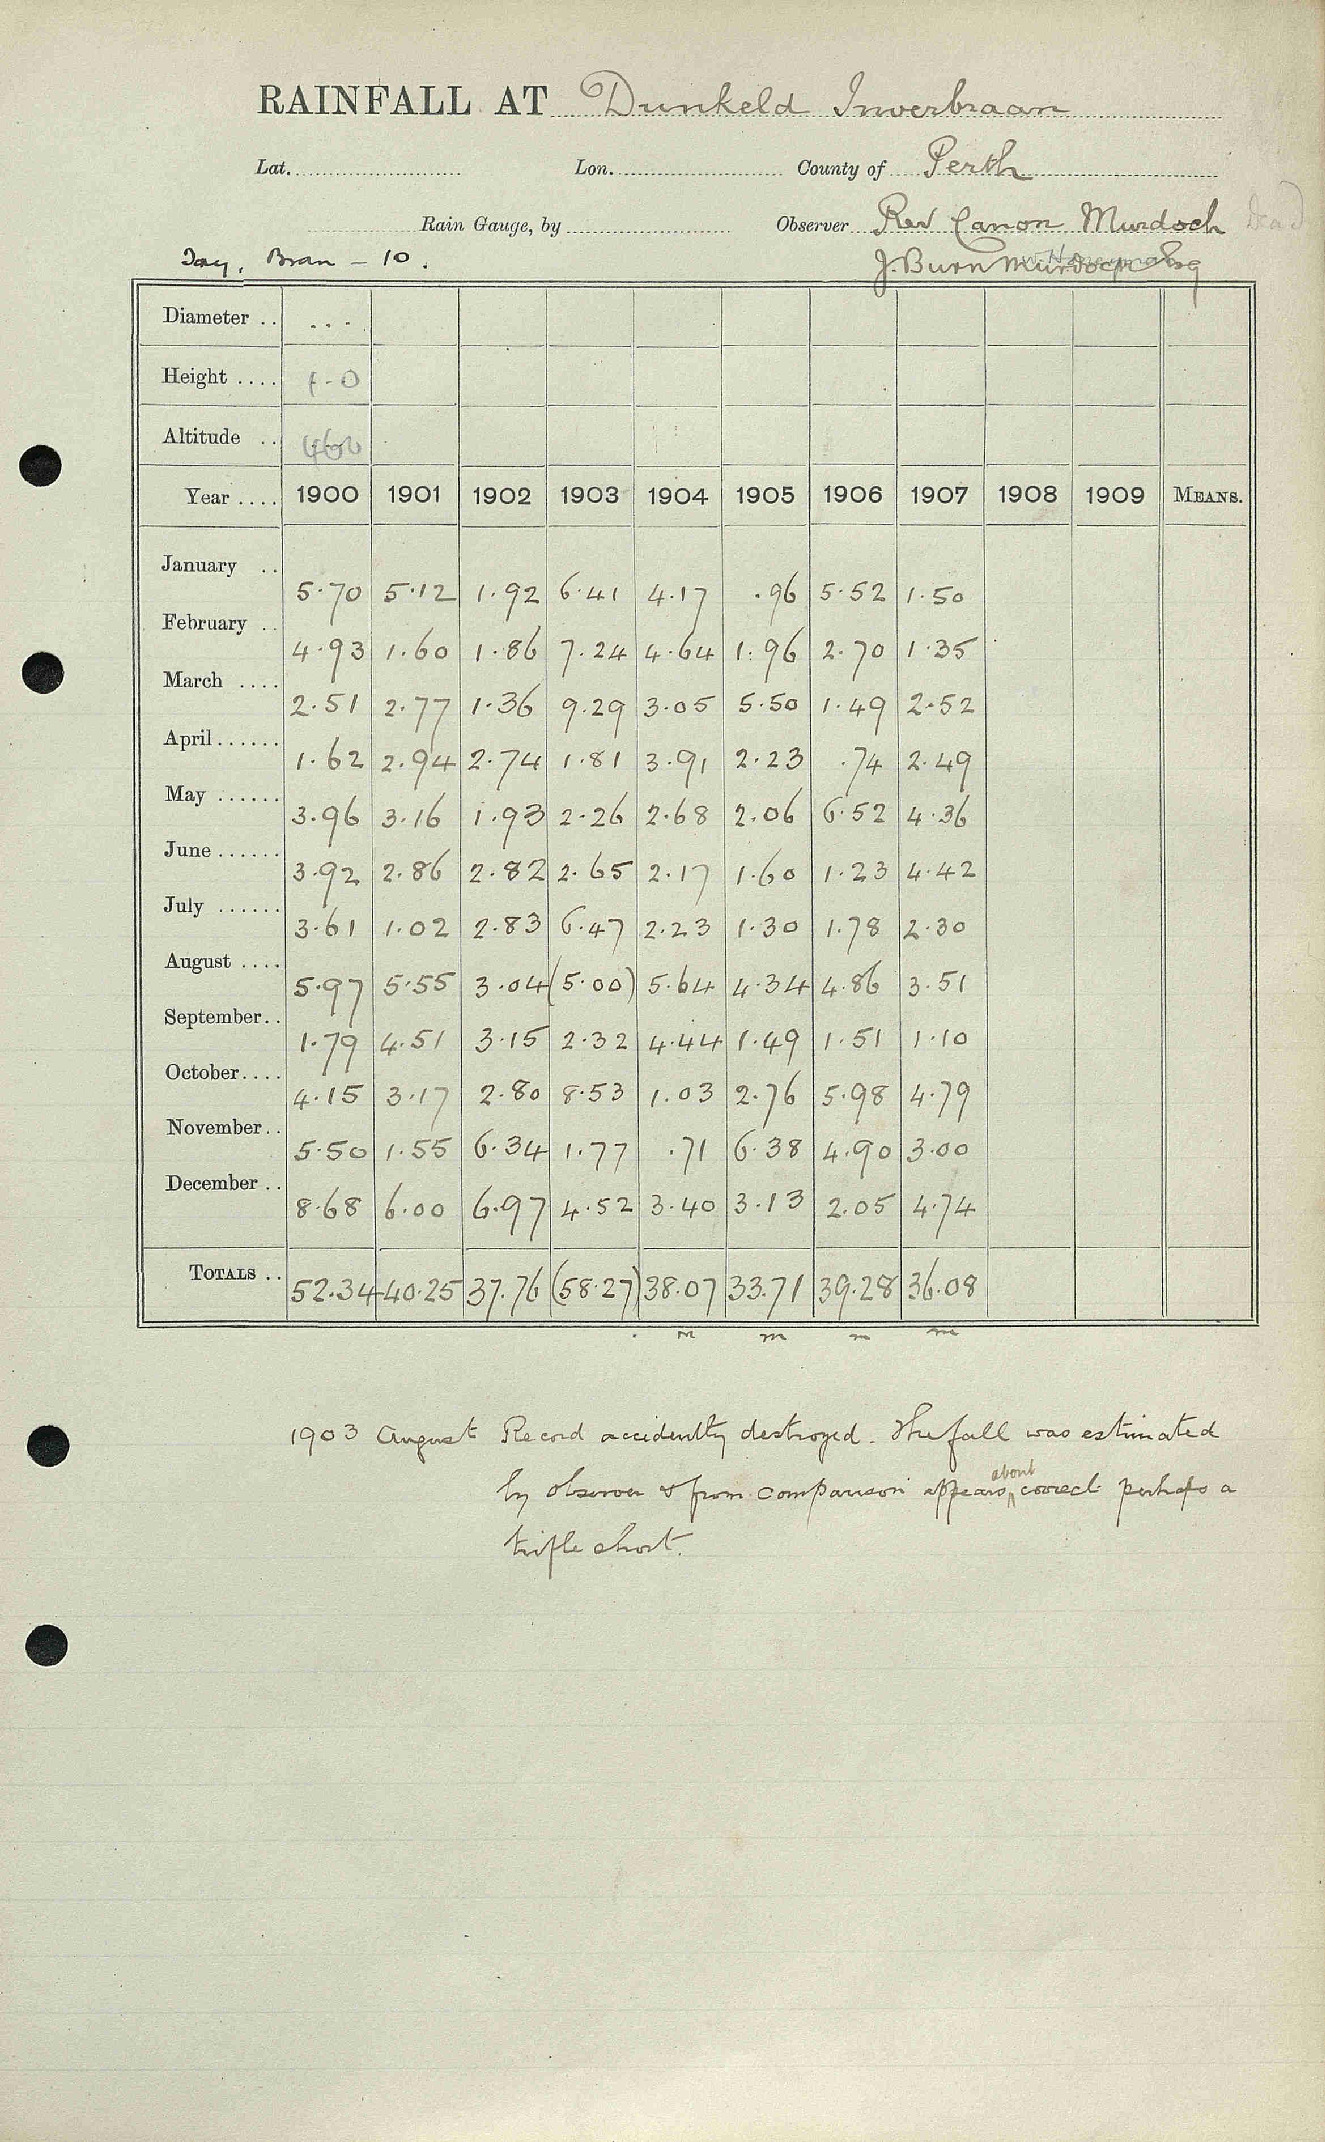 RAINFALL AT Dunkeld Inverbraan
Lat. Lon. County of Perth
Rain Gauge, by Observer Rev Canon Murdoch Dead
Tay, Bran - 10. J. Burn Murdoch Esq
Diameter .. ...
Height .... 1-0
Altitude ..
Year .... 1900 1901 1902 1903 1904 1905 1906 1907 1908 1909 MEANS.
January .. 5.70 5.12 1.92 6.41 4.17 .96 5.52 1.50
February .. 4.93 1.60 1.86 7.24 4.64 1.96 2.70 1.35
March .... 2.51 2.77 1.36 9.29 3.05 5.50 1.49 2.52
April ...... 1.62 2.94 2.74 1.81 3.91 2.23 .74 2.49
May ...... 3.96 3.16 1.93 2.26 2.68 2.06 6.52 4.36
June ...... 3.92 2.86 2.82 2.65 2.17 1.60 1.23 4.42
July ...... 3.61 1.02 2.83 6.47 2.23 1.30 1.78 2.30
August .... 5.97 5.55 3.04 (5.00) 5.64 4.34 4.86 3.51
September.. 1.79 4.51 3.15 2.32 4.44 1.49 1.51 1.10
October.... 4.15 3.17 2.80 8.53 1.03 2.76 5.98 4.79
November.. 5.50 1.55 6.34 1.77 .71 6.38 4.90 3.00
December .. 8.68 6.00 6.97 4.52 3.40 3.13 2.05 4.74
TOTALS .. 52.34 40.25 37.76 (58.27) 38.07 33.71 39.28 36.08
m m m m
1903 August Record accidently destroyed. The fall was estimated
by observer & from comparison appears about correct perhaps a
trifle short.